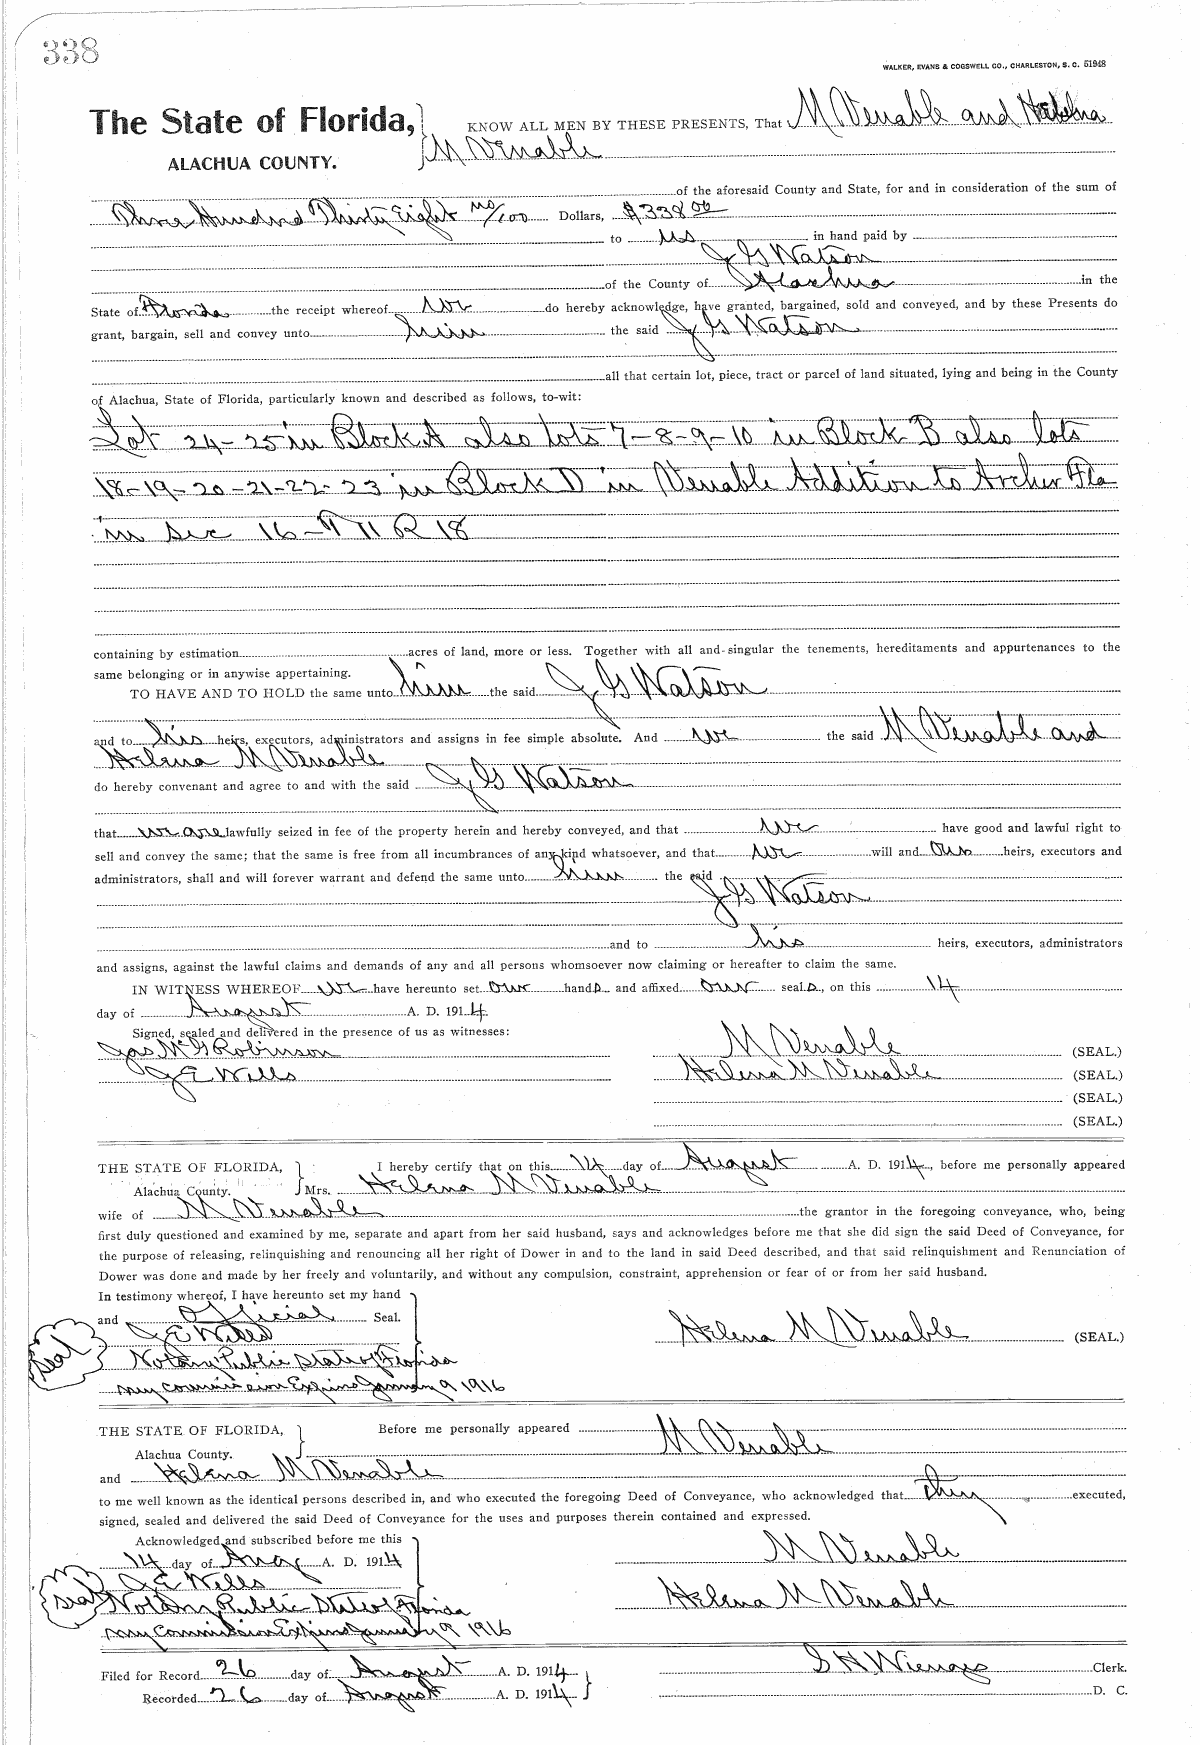 338
WALKER, EVANS & COGSWELL CO., CHARLESTON, S. C. 51948
The State of Florida, KNOW ALL MEN BY THESE PRESENTS, That M Venable and Helena
ALACHUA COUNTY. M Venable
of the aforesaid County and State, for and in consideration of the sum of
Three Hundred Thirty Eight no/100 Dollars, $338 00
to us in hand paid by
J G Watson
of the County of Alachua in the
State of Florida the receipt whereof we do hereby acknowledge, have granted, bargained, sold and conveyed, and by these Presents do
grant, bargain, sell and convey unto him the said J G Watson
all that certain lot, piece, tract or parcel of land situated, lying and being in the County
of Alachua, State of Florida, particularly known and described as follows, to-wit:
Lot 24-25 in Block A also lots 7-8-9-10 in Block B also lots
18-19-20-21-22-23 in Block D in Venable Addition to Archer Fla
in Sec 16-T 11 R 18
containing by estimation acres of land, more or less. Together with all and singular the tenements, hereditaments and appurtenances to the
same belonging or in anywise appertaining.
TO HAVE AND TO HOLD the same unto him the said J G Watson
and to his heirs, executors, administrators and assigns in fee simple absolute. And we the said M Venable and
Helena M Venable
do hereby convenant and agree to and with the said J G Watson
that we are lawfully seized in fee of the property herein and hereby conveyed, and that we have good and lawful right to
sell and convey the same; that the same is free from all incumbrances of any kind whatsoever, and that we will and our heirs, executors and
administrators, shall and will forever warrant and defend the same unto him the said
J G Watson
and to his heirs, executors, administrators
and assigns, against the lawful claims and demands of any and all persons whomsoever now claiming or hereafter to claim the same.
IN WITNESS WHEREOF we have hereunto set our hands and affixed our seals, on this 14
day of August A. D. 1914
Signed, sealed and delivered in the presence of us as witnesses:
Jas McG Robinson M Venable (SEAL.)
J E Wills Helena M Venable (SEAL.)
(SEAL.)
(SEAL.)
THE STATE OF FLORIDA, I hereby certify that on this 14 day of August A. D. 1914, before me personally appeared
Alachua County. Mrs. Helena M Venable
wife of M Venable the grantor in the foregoing conveyance, who, being
first duly questioned and examined by me, separate and apart from her said husband, says and acknowledges before me that she did sign the said Deed of Conveyance, for
the purpose of releasing, relinquishing and renouncing all her right of Dower in and to the land in said Deed described, and that said relinquishment and Renunciation of
Dower was done and made by her freely and voluntarily, and without any compulsion, constraint, apprehension or fear of or from her said husband.
In testimony whereof, I have hereunto set my hand
and official Seal.
J E Wills Helena M Venable (SEAL.)
Seal Notary Public State of Florida
My commission Expires January 9 1916
THE STATE OF FLORIDA, Before me personally appeared M Venable
Alachua County.
and Helena M Venable
to me well known as the identical persons described in, and who executed the foregoing Deed of Conveyance, who acknowledged that they executed,
signed, sealed and delivered the said Deed of Conveyance for the uses and purposes therein contained and expressed.
Acknowledged and subscribed before me this
14 day of Aug A. D. 1914 M Venable
J E Wills
Seal Notary Public State of Florida Helena M Venable
My Commission Expires January 9 1916
Filed for Record 26 day of August A. D. 1914 S H Wienges Clerk.
Recorded 26 day of August A. D. 1914 D. C.